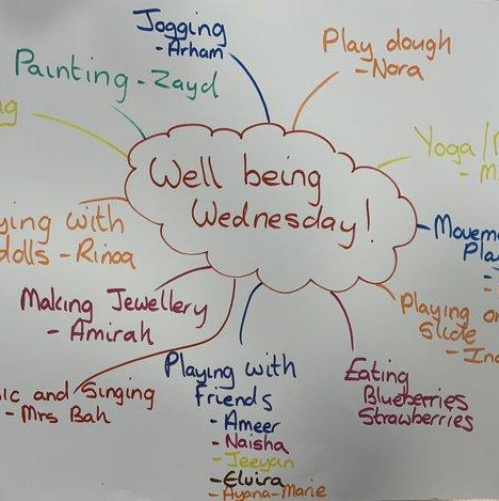 Jogging
- Arham
Play dough
- Nora
Painting - Zayd
Yoga /
Well being
Wednesday!
with
dolls - Rinoa
Making Jewellery
- Amirah
Playing on
Slide
and Singing
- Mrs Bah
Playing with
Friends
- Ameer
- Naisha
- Jeeyan
- Elvira
- Ayana-Marie
Eating
Blueberries
Strawberries